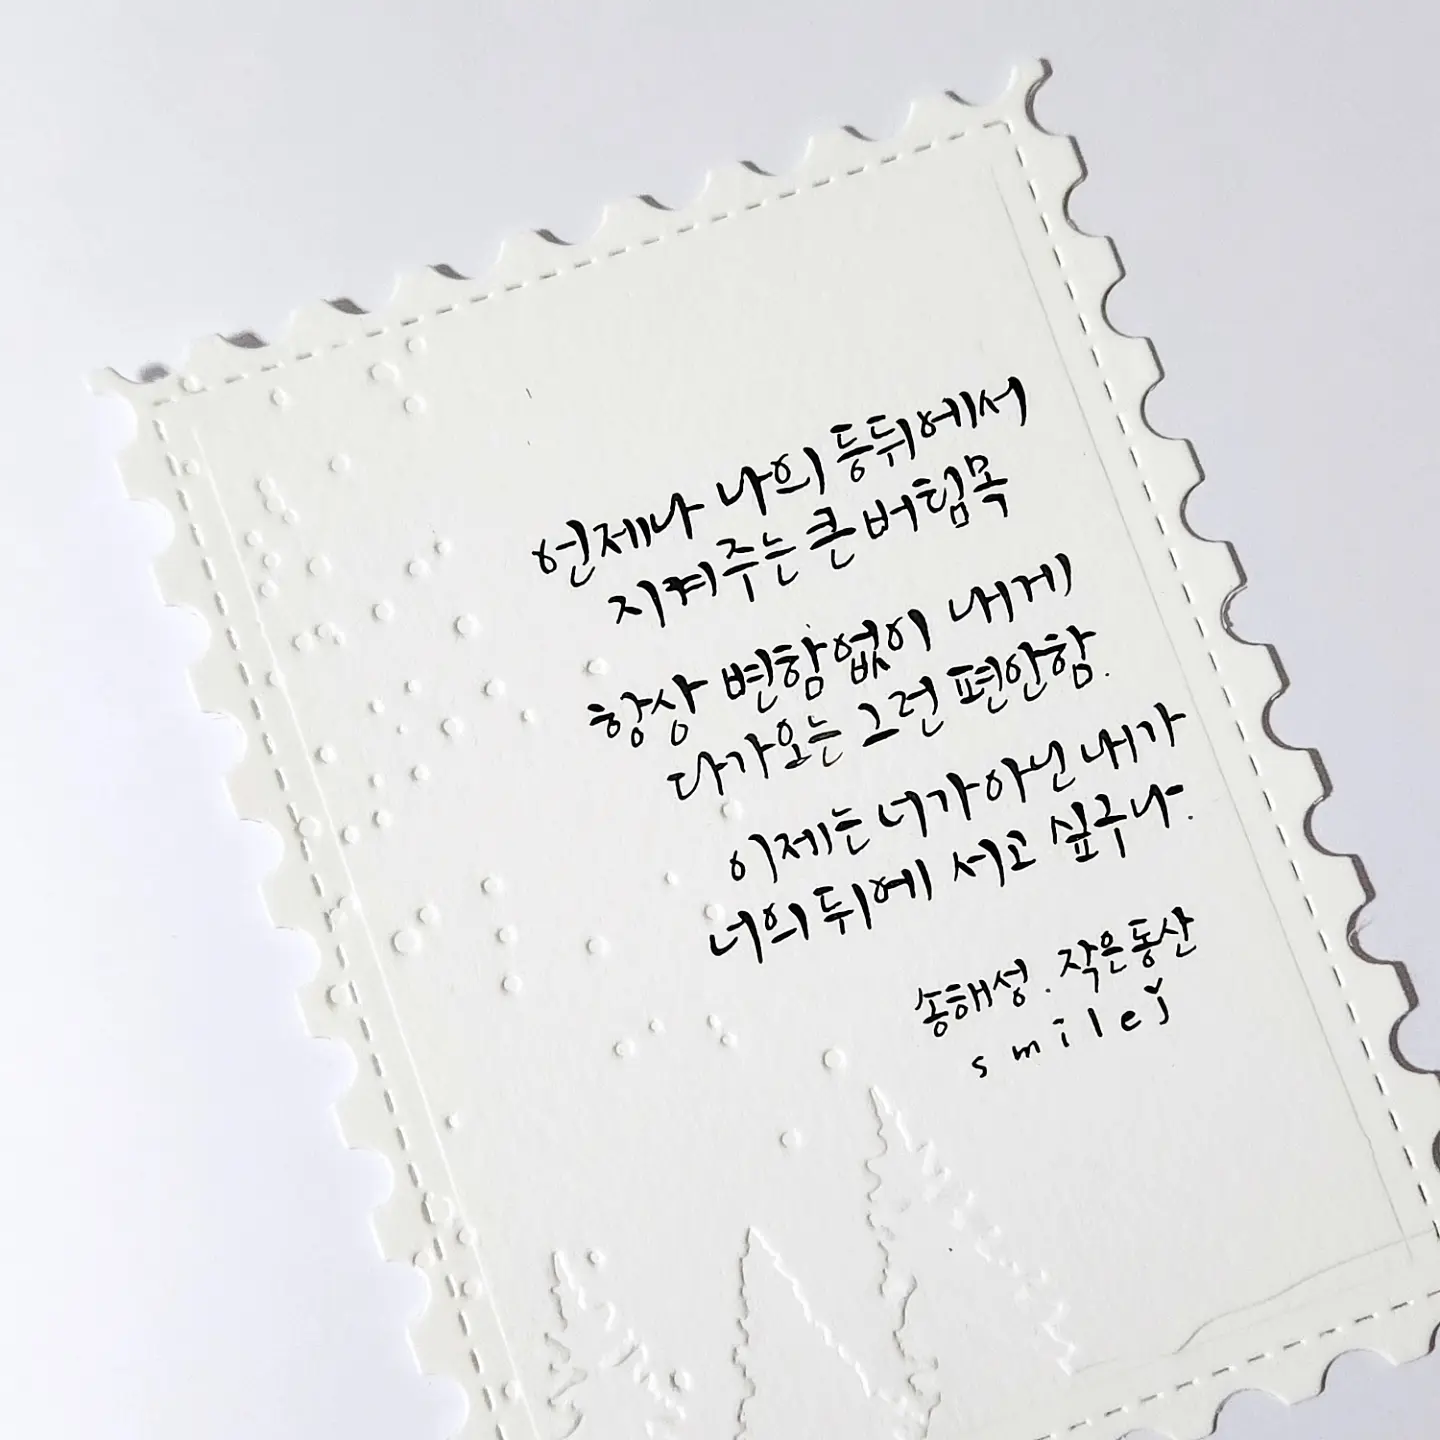 언제나 나의 등뒤에서
지켜주는 큰 버팀목
항상 변함없이 내게
다가오는 그런 편안함.
이제는 너가 아닌 내가
너의 뒤에 서고 싶구나.
송해성. 작은동산
smilej